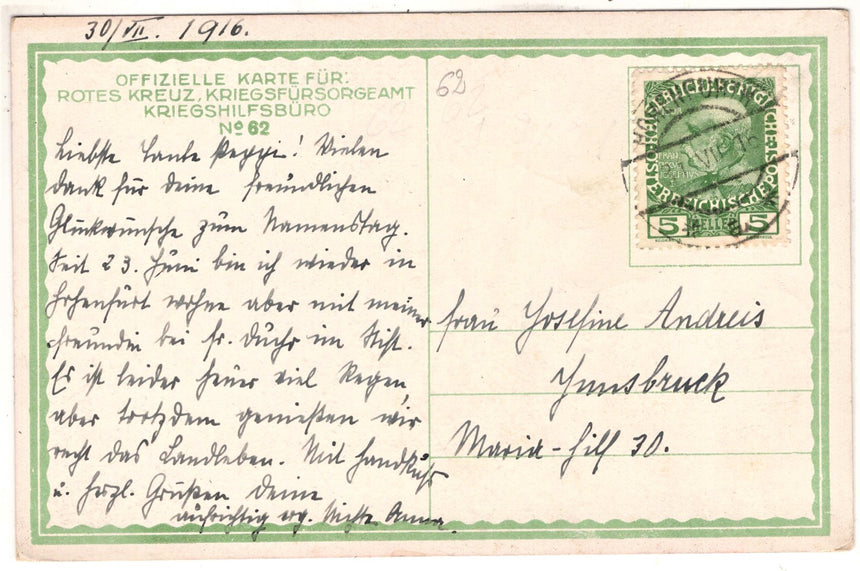 30/VII. 1916.
OFFIZIELLE KARTE FÜR:
ROTES KREUZ, KRIEGSFÜRSORGEAMT
KRIEGSHILFSBÜRO
Nº 62
62
Liebste Tante Peppi! Vielen
Dank für Deine freundlichen
Glückwünsche zum Namenstag.
Seit 23. Juni bin ich wieder in
Hohenfurt wohne aber mit meiner
Freundin bei Fr. im Stift.
Es ist leider heuer viel Regen,
aber trotzdem genießen wir
recht das Landleben. Mit Handkuss
u. herzl. Grüßen Deine
aufrichtig erg. Nichte Anna.
5 HELLER 5
Frau Josefine Andreis
Innsbruck
Maria-hilf 30.